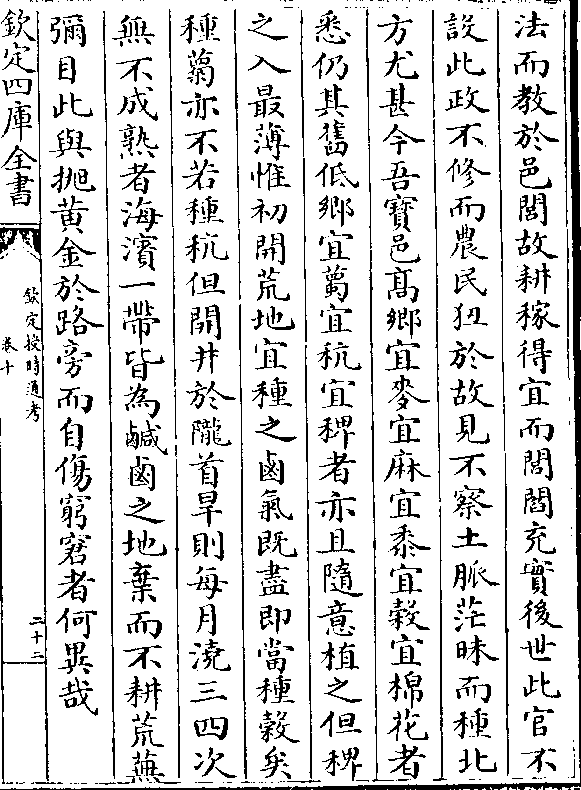 法而教於邑閭故耕稼得宜而閭閻充實後世此官不
設此政不修而農民狃於故見不察土脈茫昧而種北
方尤甚今吾寶邑髙鄉宜麥宜麻宜黍宜穀宜棉花者
悉仍其舊低鄉宜蔔宜秔宜稗者亦且隨意植之但稗
之入最薄惟初開荒地宜種之鹵氣既盡即當種穀矣
種蔔亦不若種秔但開井於隴首旱則每月澆三四次
無不成熟者海濱一帶皆為鹹鹵之地棄而不耕荒蕪
彌目此與抛黄金於路旁而自傷窮窘者何異哉
欽定四庫全書
欽定授時通考
卷十
二十二